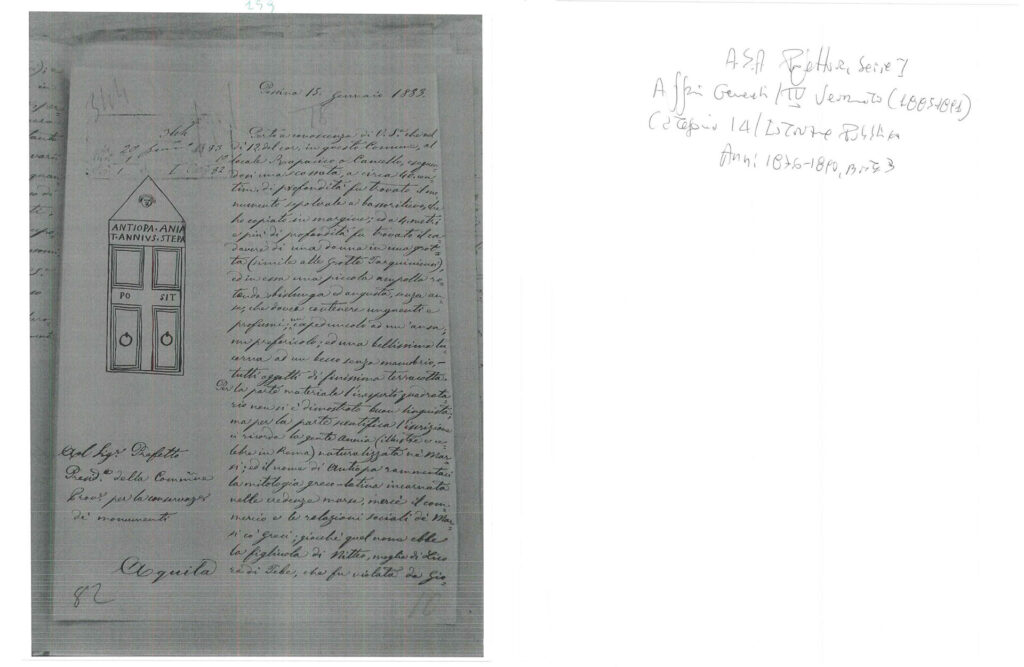 199
344
Pescina 15. Gennaio 1883.
Porto a conoscenza di V. S. che nel
dì 12 del cor. in questo Comune, al
locale Rapanico a Cancello, eseguen-
dosi una scassata, a circa 40 cen-
tim. di profondità fu trovato il mo-
numento sepolcrale a bassorilievo, che
ho copiato in margine; ed a 4 metri
e più di profondità fu trovato il ca-
davere di una donna in una grot-
ta (simile alle grotte Tarquiniesi)
ed in essa una piccola ampolla ro-
tonda bislunga ed angusta, senza an-
se, che dovea contenere unguenti e
profumi; un capeduncolo ad un'ansa,
un prefericolo; ed una bellissima lu-
cerna ad un becco senza manubrio,—
tutti oggetti di finissima terracotta.
Per la parte materiale l'inesperto quadrata-
rio non si è dimostrato buon linguista;
ma per la parte scientifica l'iscrizione
ci ricorda la gente Annia (illustre e ce-
lebre in Roma) naturalizzata ne' Mar-
si; ed il nome di Antiopa rammentaci
la mitologia greco-latina incarnata
nelle credenze marse, mercè il com-
mercio e le relazioni sociali de' Mar-
si co' Greci; giacchè quel nome ebbe
la figliuola di Nitteo, moglie di Lico
re di Tebe, che fu violata da Gio-
ANTIOPA · ANIA
T · ANNIVS · STEPA
PO SIT
Al Sig. Prefetto
Presid. della Commissione
Prov. per la conservazione
di monumenti
Aquila
82
16
ASA Prefettura, Serie I
Affari Generali / IV Versamento (1865-1891)
Categoria 14 / Istruzione Pubblica
Anni 1876-1890, Busta 3